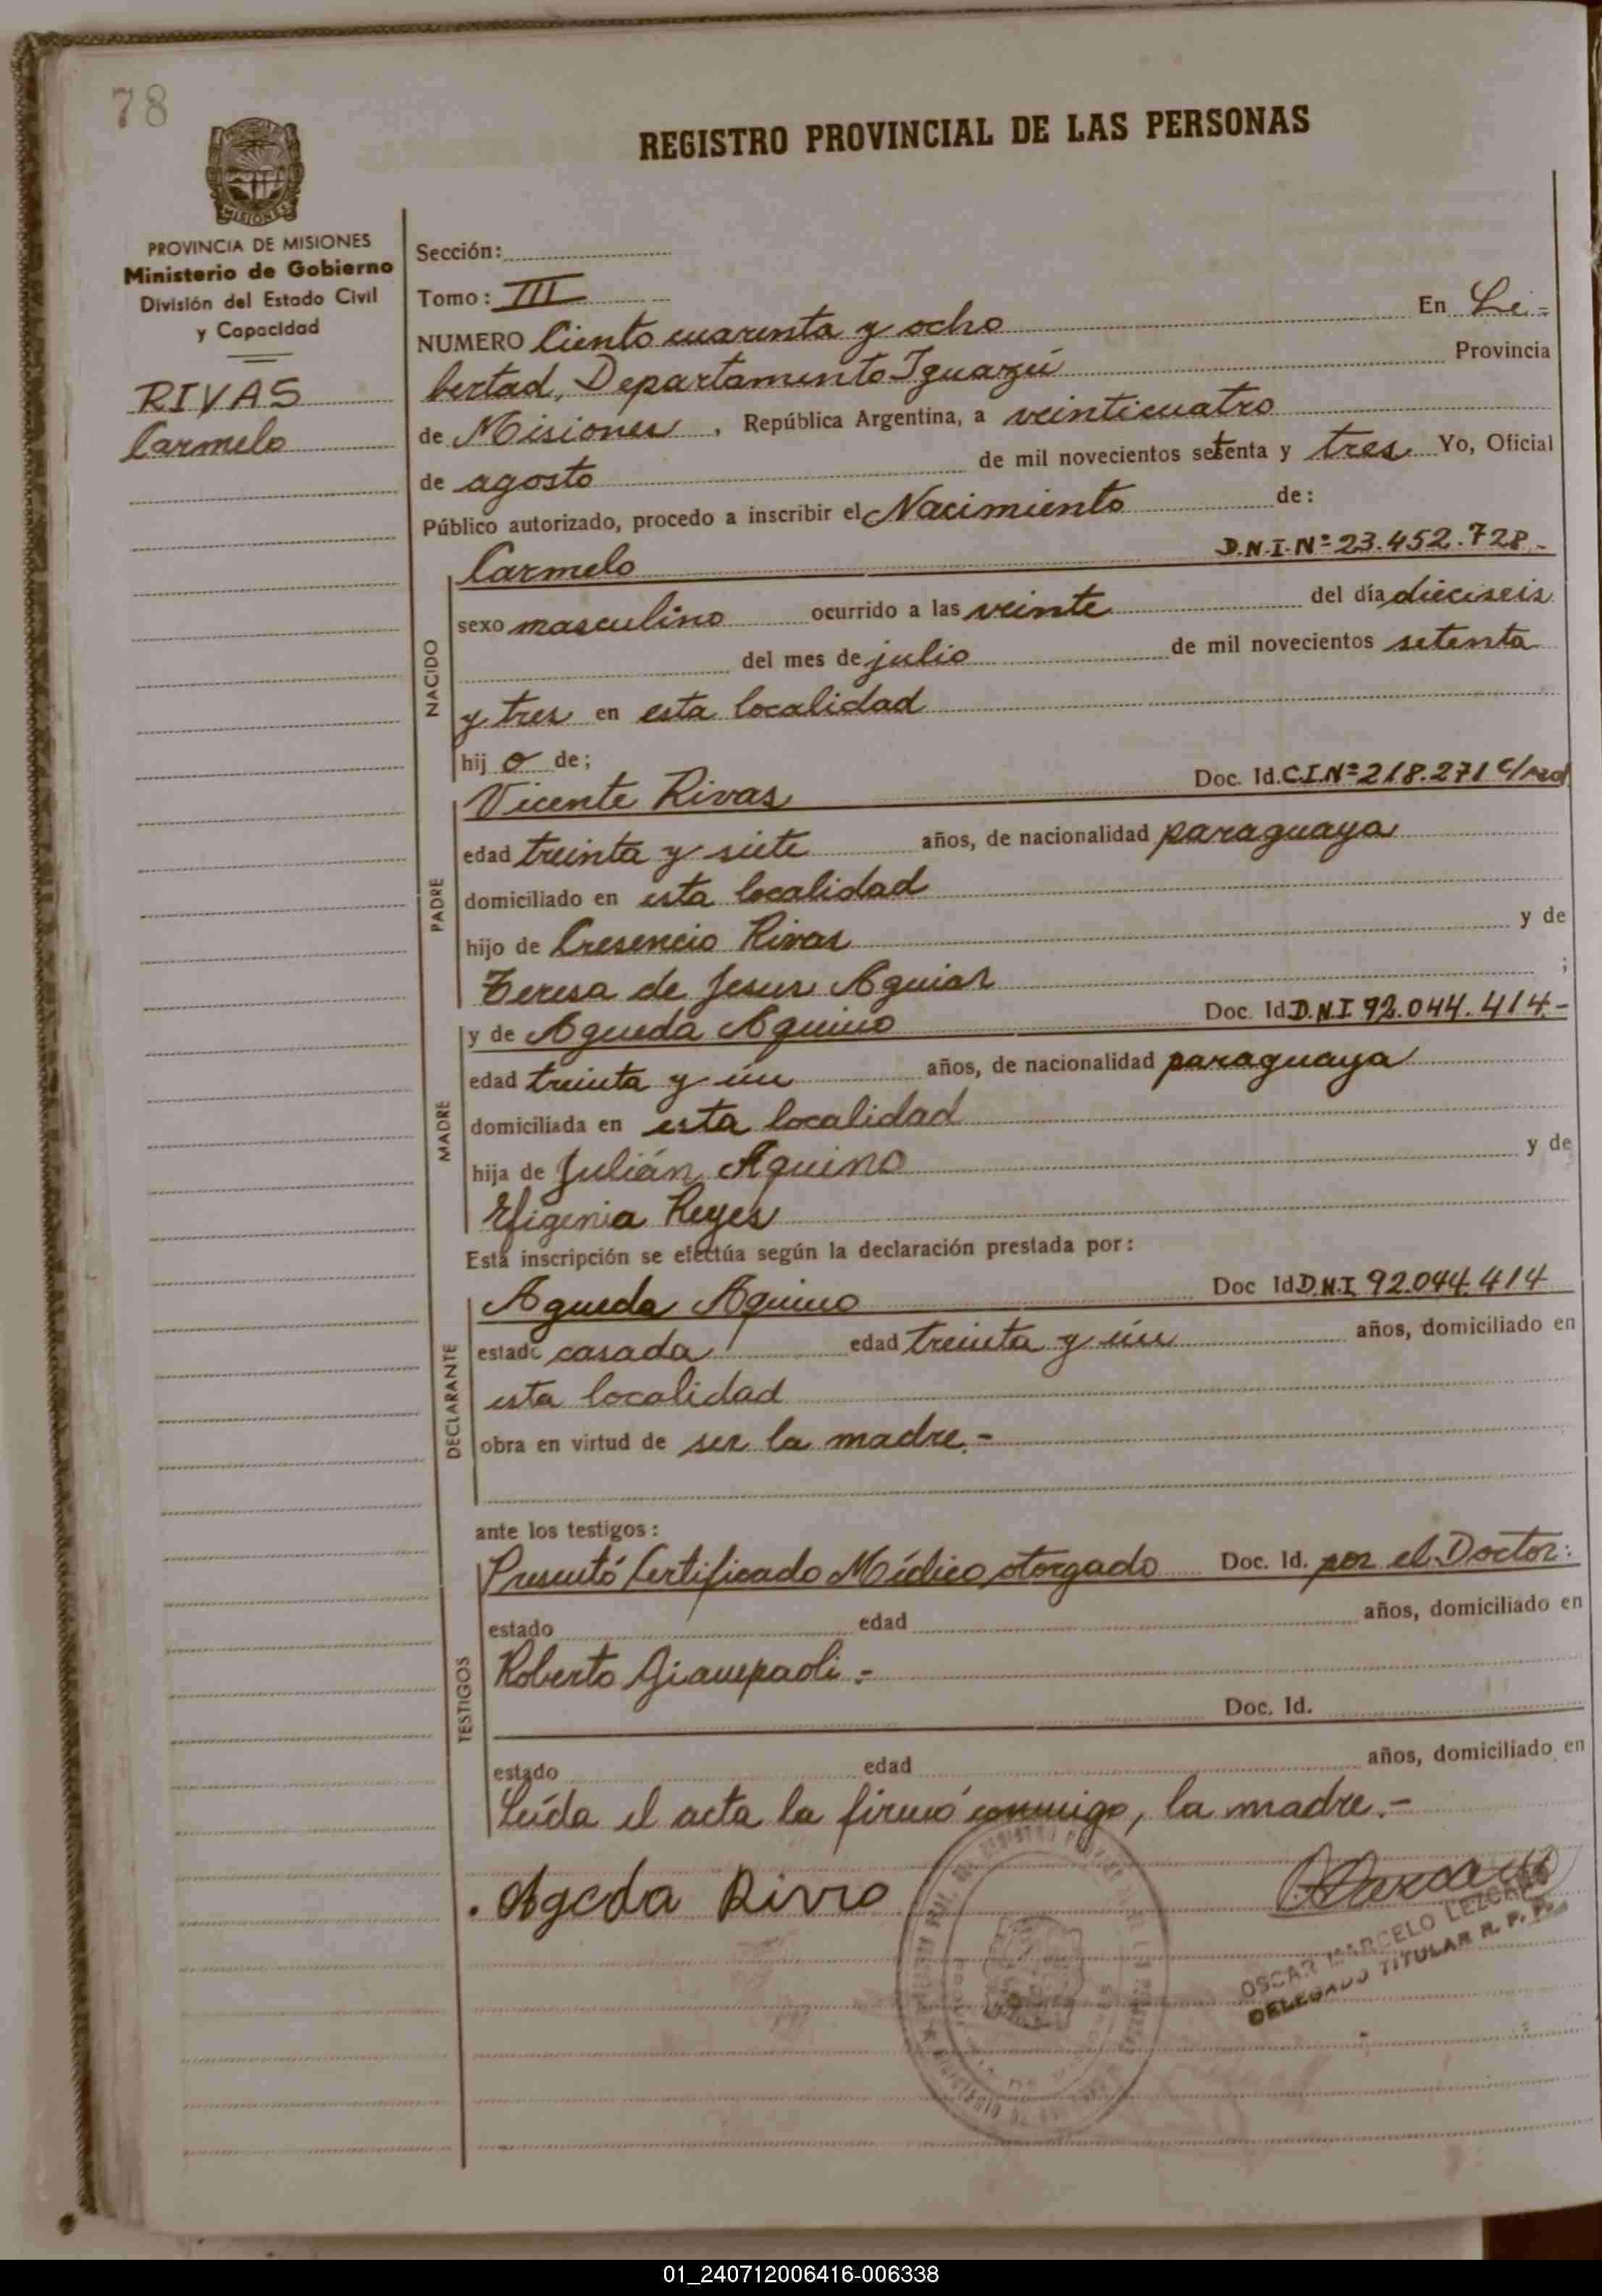 78
REGISTRO PROVINCIAL DE LAS PERSONAS
MISIONES
PROVINCIA DE MISIONES
Ministerio de Gobierno
División del Estado Civil
y Capacidad
RIVAS
Carmelo
Sección:
Tomo: III
NUMERO Ciento cuarenta y ocho En Li-
bertad, Departamento Iguazú Provincia
de Misiones, República Argentina, a veinticuatro
de agosto de mil novecientos setenta y tres Yo, Oficial
Público autorizado, procedo a inscribir el Nacimiento de:
Carmelo D.N.I.Nº 23.452.728-
NACIDO
sexo masculino ocurrido a las veinte del día dieciseis
del mes de julio de mil novecientos setenta
y tres en esta localidad
hij o de;
PADRE
Vicente Rivas Doc. Id. C.I.Nº 218.271
edad treinta y siete años, de nacionalidad paraguaya
domiciliado en esta localidad
hijo de Cresencio Rivas y de
Teresa de Jesus Aguiar ;
MADRE
y de Agueda Aquino Doc. Id D.N.I 92.044.414-
edad treinta y ún años, de nacionalidad paraguaya
domiciliada en esta localidad
hija de Julián Aquino y de
Efigenia Reyes
Esta inscripción se efectúa según la declaración prestada por:
DECLARANTE
Agueda Aquino Doc Id D.N.I 92.044.414
estado casada edad treinta y ún años, domiciliado en
esta localidad
obra en virtud de ser la madre.-
ante los testigos:
TESTIGOS
Presentó Certificado Médico otorgado Doc. Id. por el Doctor:
estado edad años, domiciliado en
Roberto Giampaoli.-
Doc. Id.
estado edad años, domiciliado en
Leída el acta la firmó conmigo, la madre.-
Ageda Rivro
OSCAR MARCELO LEZCANO
DELEGADO TITULAR R. P. P.
01_240712006416-006338